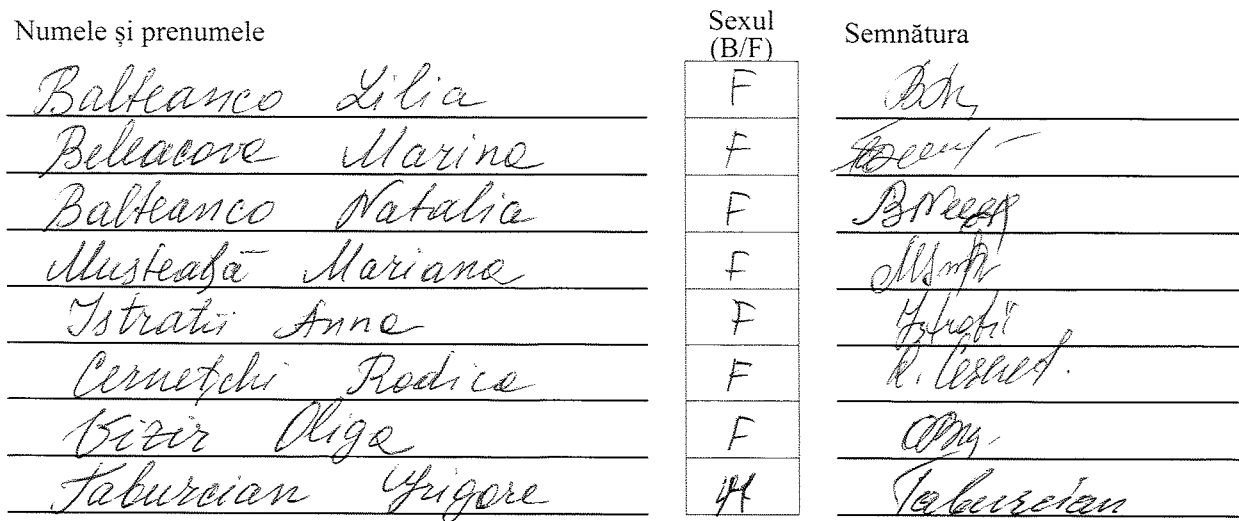 Numele și prenumele Sexul (B/F) Semnătura
Balteanco Lilia F
Beleacova Marina F
Balteanco Natalia F
Musteață Mariana F
Istratii Anna F Istratii
Cernețchi Rodica F
Vizir Oliga F
Taburcian Grigore Taburcian